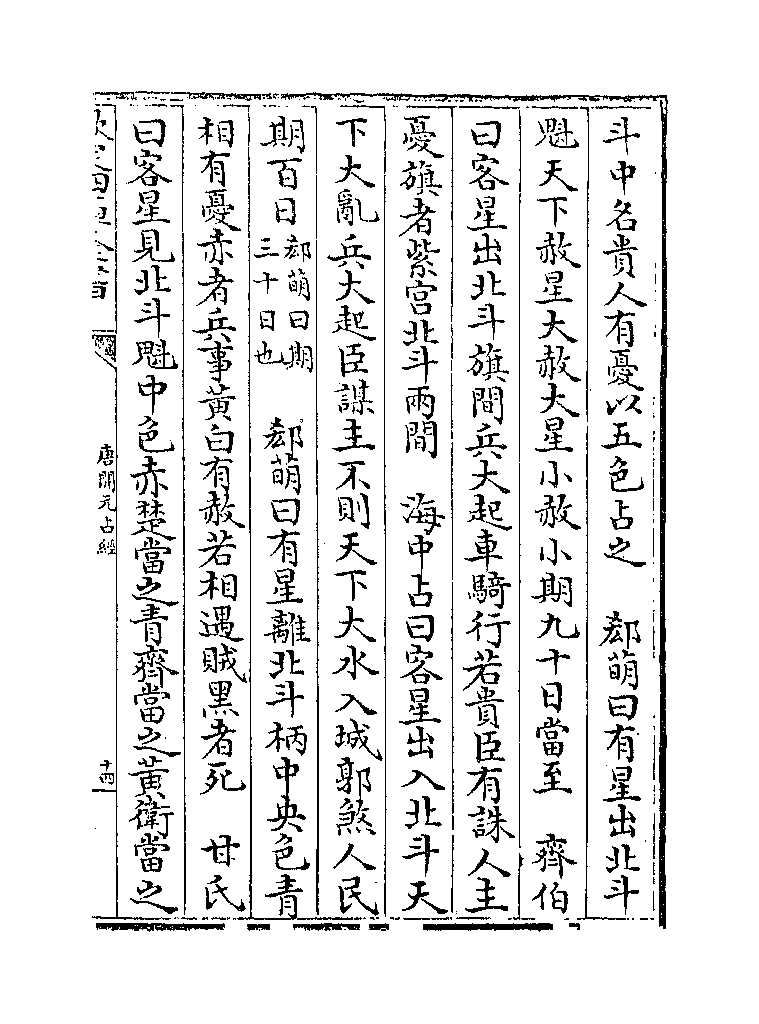 斗中名貴人有憂以五色占之　郄萌曰有星出北斗
魁天下赦星大赦大星小赦小期九十日當至　齊伯
曰客星出北斗旗間兵大起車騎行若貴臣有誅人主
憂旗者紫宮北斗兩間　海中占曰客星出入北斗天
下大亂兵大起臣謀主不則天下大水入城郭煞人民
期百日郄萌曰期三十日也　郄萌曰有星離北斗柄中央色青
相有憂赤者兵事黃白有赦若相遇賊黑者死　甘氏
曰客星見北斗魁中色赤楚當之青齊當之黃衛當之
欽定四庫全書
唐開元占經
十四